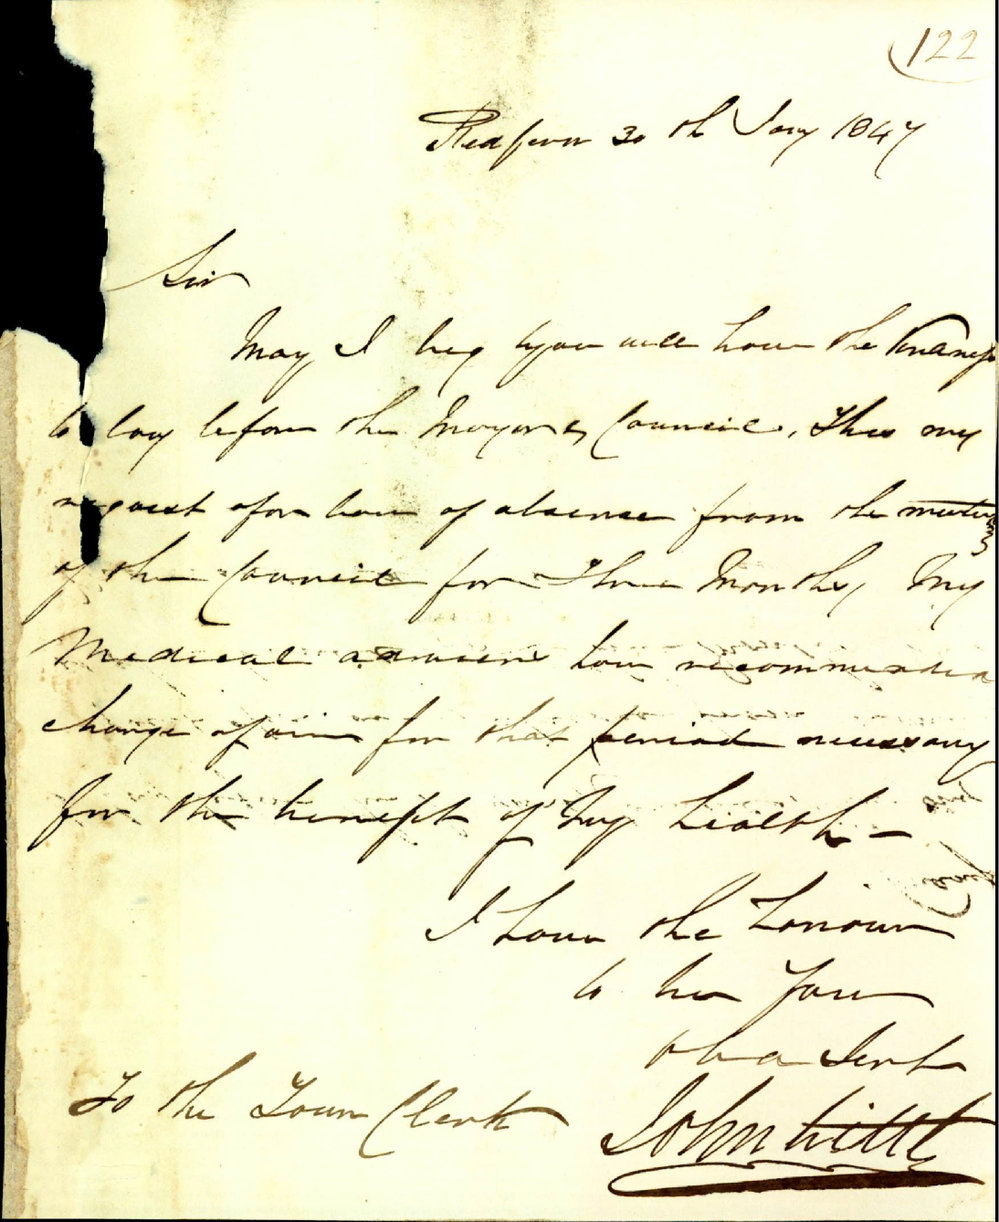 122
Redfern 30th Jany 1847
Sir
May I beg you will have the kindness
to lay before the Mayor & Council, this my
request for leave of absence from the meetings
of the Council for Three Months, My
Medical advisers have recommended
change of air for that period necessary
for the benefit of My health –
I have the honour
to be Your
obd Servt
To the Town Clerk
John